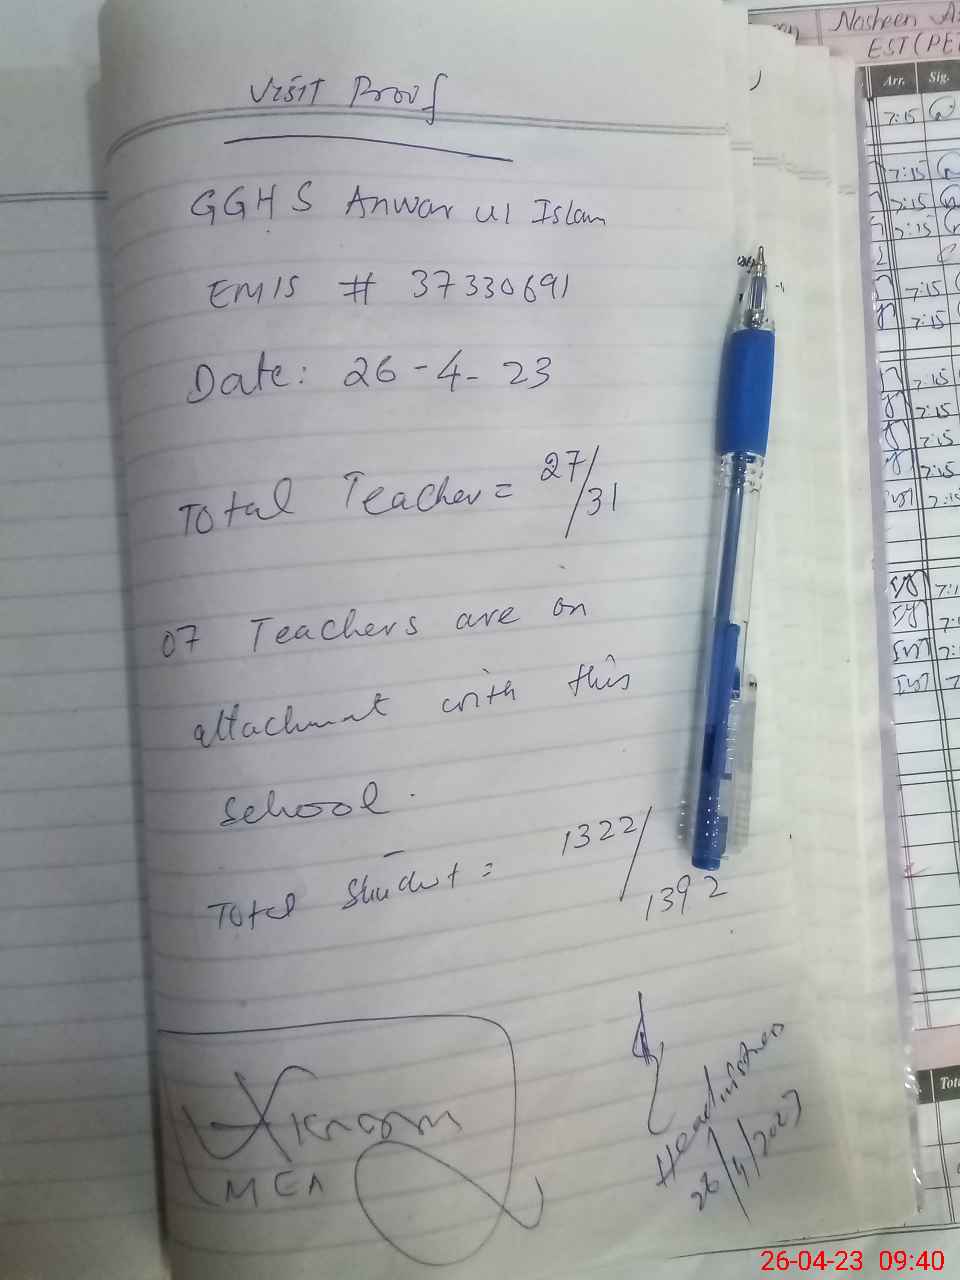 Visit Proof
GGHS Anwar ul Islam
EMIS # 37330691
Date: 26-4-23
Total Teacher = 27/31
07 Teachers are on
attachment with this
school.
Total Student = 1322/1392
MEA
Headmistress
26/4/2023
Nosheen
EST (PET
Arr. Sig.
7:15
7:15
7:15
7:15
7:15
7:15
7:15
7:15
7:15
7:15
26-04-23 09:40